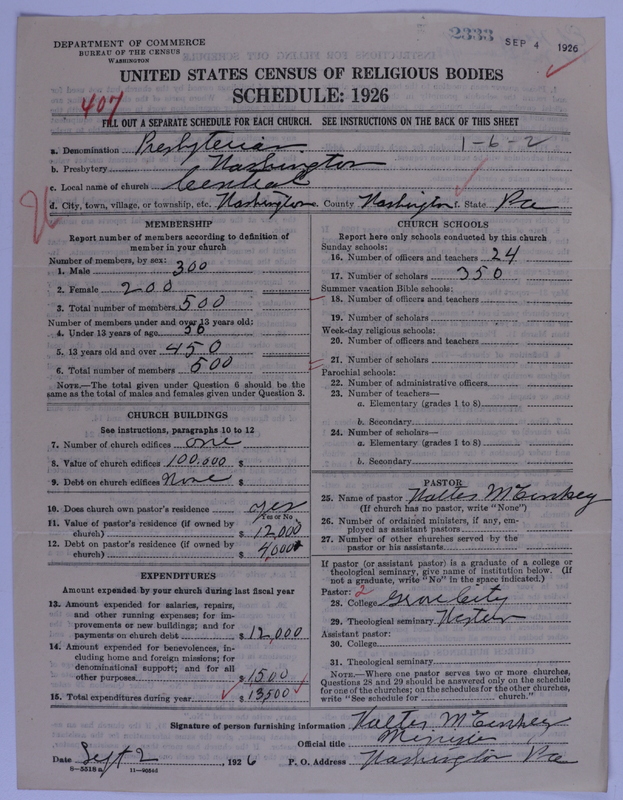 DEPARTMENT OF COMMERCE
BUREAU OF THE CENSUS
WASHINGTON
2333
SEP 4 1926
UNITED STATES CENSUS OF RELIGIOUS BODIES
SCHEDULE: 1926
407
FILL OUT A SEPARATE SCHEDULE FOR EACH CHURCH. SEE INSTRUCTIONS ON THE BACK OF THIS SHEET
a. Denomination Presbyterian 1-6-2
b. Presbytery Washington
c. Local name of church Central
d. City, town, village, or township, etc. Washington e. County Washington f. State Pa
MEMBERSHIP
Report number of members according to definition of
member in your church
Number of members, by sex:
1. Male 300
2. Female 200
3. Total number of members 500
Number of members under and over 13 years old:
4. Under 13 years of age 50
5. 13 years old and over 450
6. Total number of members 500
NOTE.—The total given under Question 6 should be the
same as the total of males and females given under Question 3.
CHURCH BUILDINGS
See instructions, paragraphs 10 to 12
7. Number of church edifices one
8. Value of church edifices 100.000 $
9. Debt on church edifices None $
10. Does church own pastor's residence yes
(Yes or No)
11. Value of pastor's residence (if owned by
church) $ 12,000
12. Debt on pastor's residence (if owned by
church) $ 4,000
EXPENDITURES
Amount expended by your church during last fiscal year
13. Amount expended for salaries, repairs,
and other running expenses; for im-
provements or new buildings; and for
payments on church debt $ 12,000
14. Amount expended for benevolences, in-
cluding home and foreign missions; for
denominational support; and for all
other purposes $ 1500
15. Total expenditures during year $ 13,500
CHURCH SCHOOLS
Report here only schools conducted by this church
Sunday schools:
16. Number of officers and teachers 24
17. Number of scholars 350
Summer vacation Bible schools:
18. Number of officers and teachers
19. Number of scholars
Week-day religious schools:
20. Number of officers and teachers
21. Number of scholars
Parochial schools:
22. Number of administrative officers
23. Number of teachers—
a. Elementary (grades 1 to 8)
b. Secondary
24. Number of scholars—
a. Elementary (grades 1 to 8)
b. Secondary
PASTOR
25. Name of pastor Walter
(If church has no pastor, write "None")
26. Number of ordained ministers, if any, em-
ployed as assistant pastors
27. Number of other churches served by the
pastor or his assistants
If pastor (or assistant pastor) is a graduate of a college or
theological seminary, give name of institution below. (If
not a graduate, write "No" in the space indicated.)
Pastor: 2
28. College Grove City
29. Theological seminary Western
Assistant pastor:
30. College
31. Theological seminary
NOTE.—Where one pastor serves two or more churches,
Questions 28 and 29 should be answered only on the schedule
for one of the churches; on the schedules for the other churches,
write "See schedule for church."
Signature of person furnishing information Walter
Official title Minister
Date Sept 2, 1926 P. O. Address Washington Pa
8—5518a 11—9054d